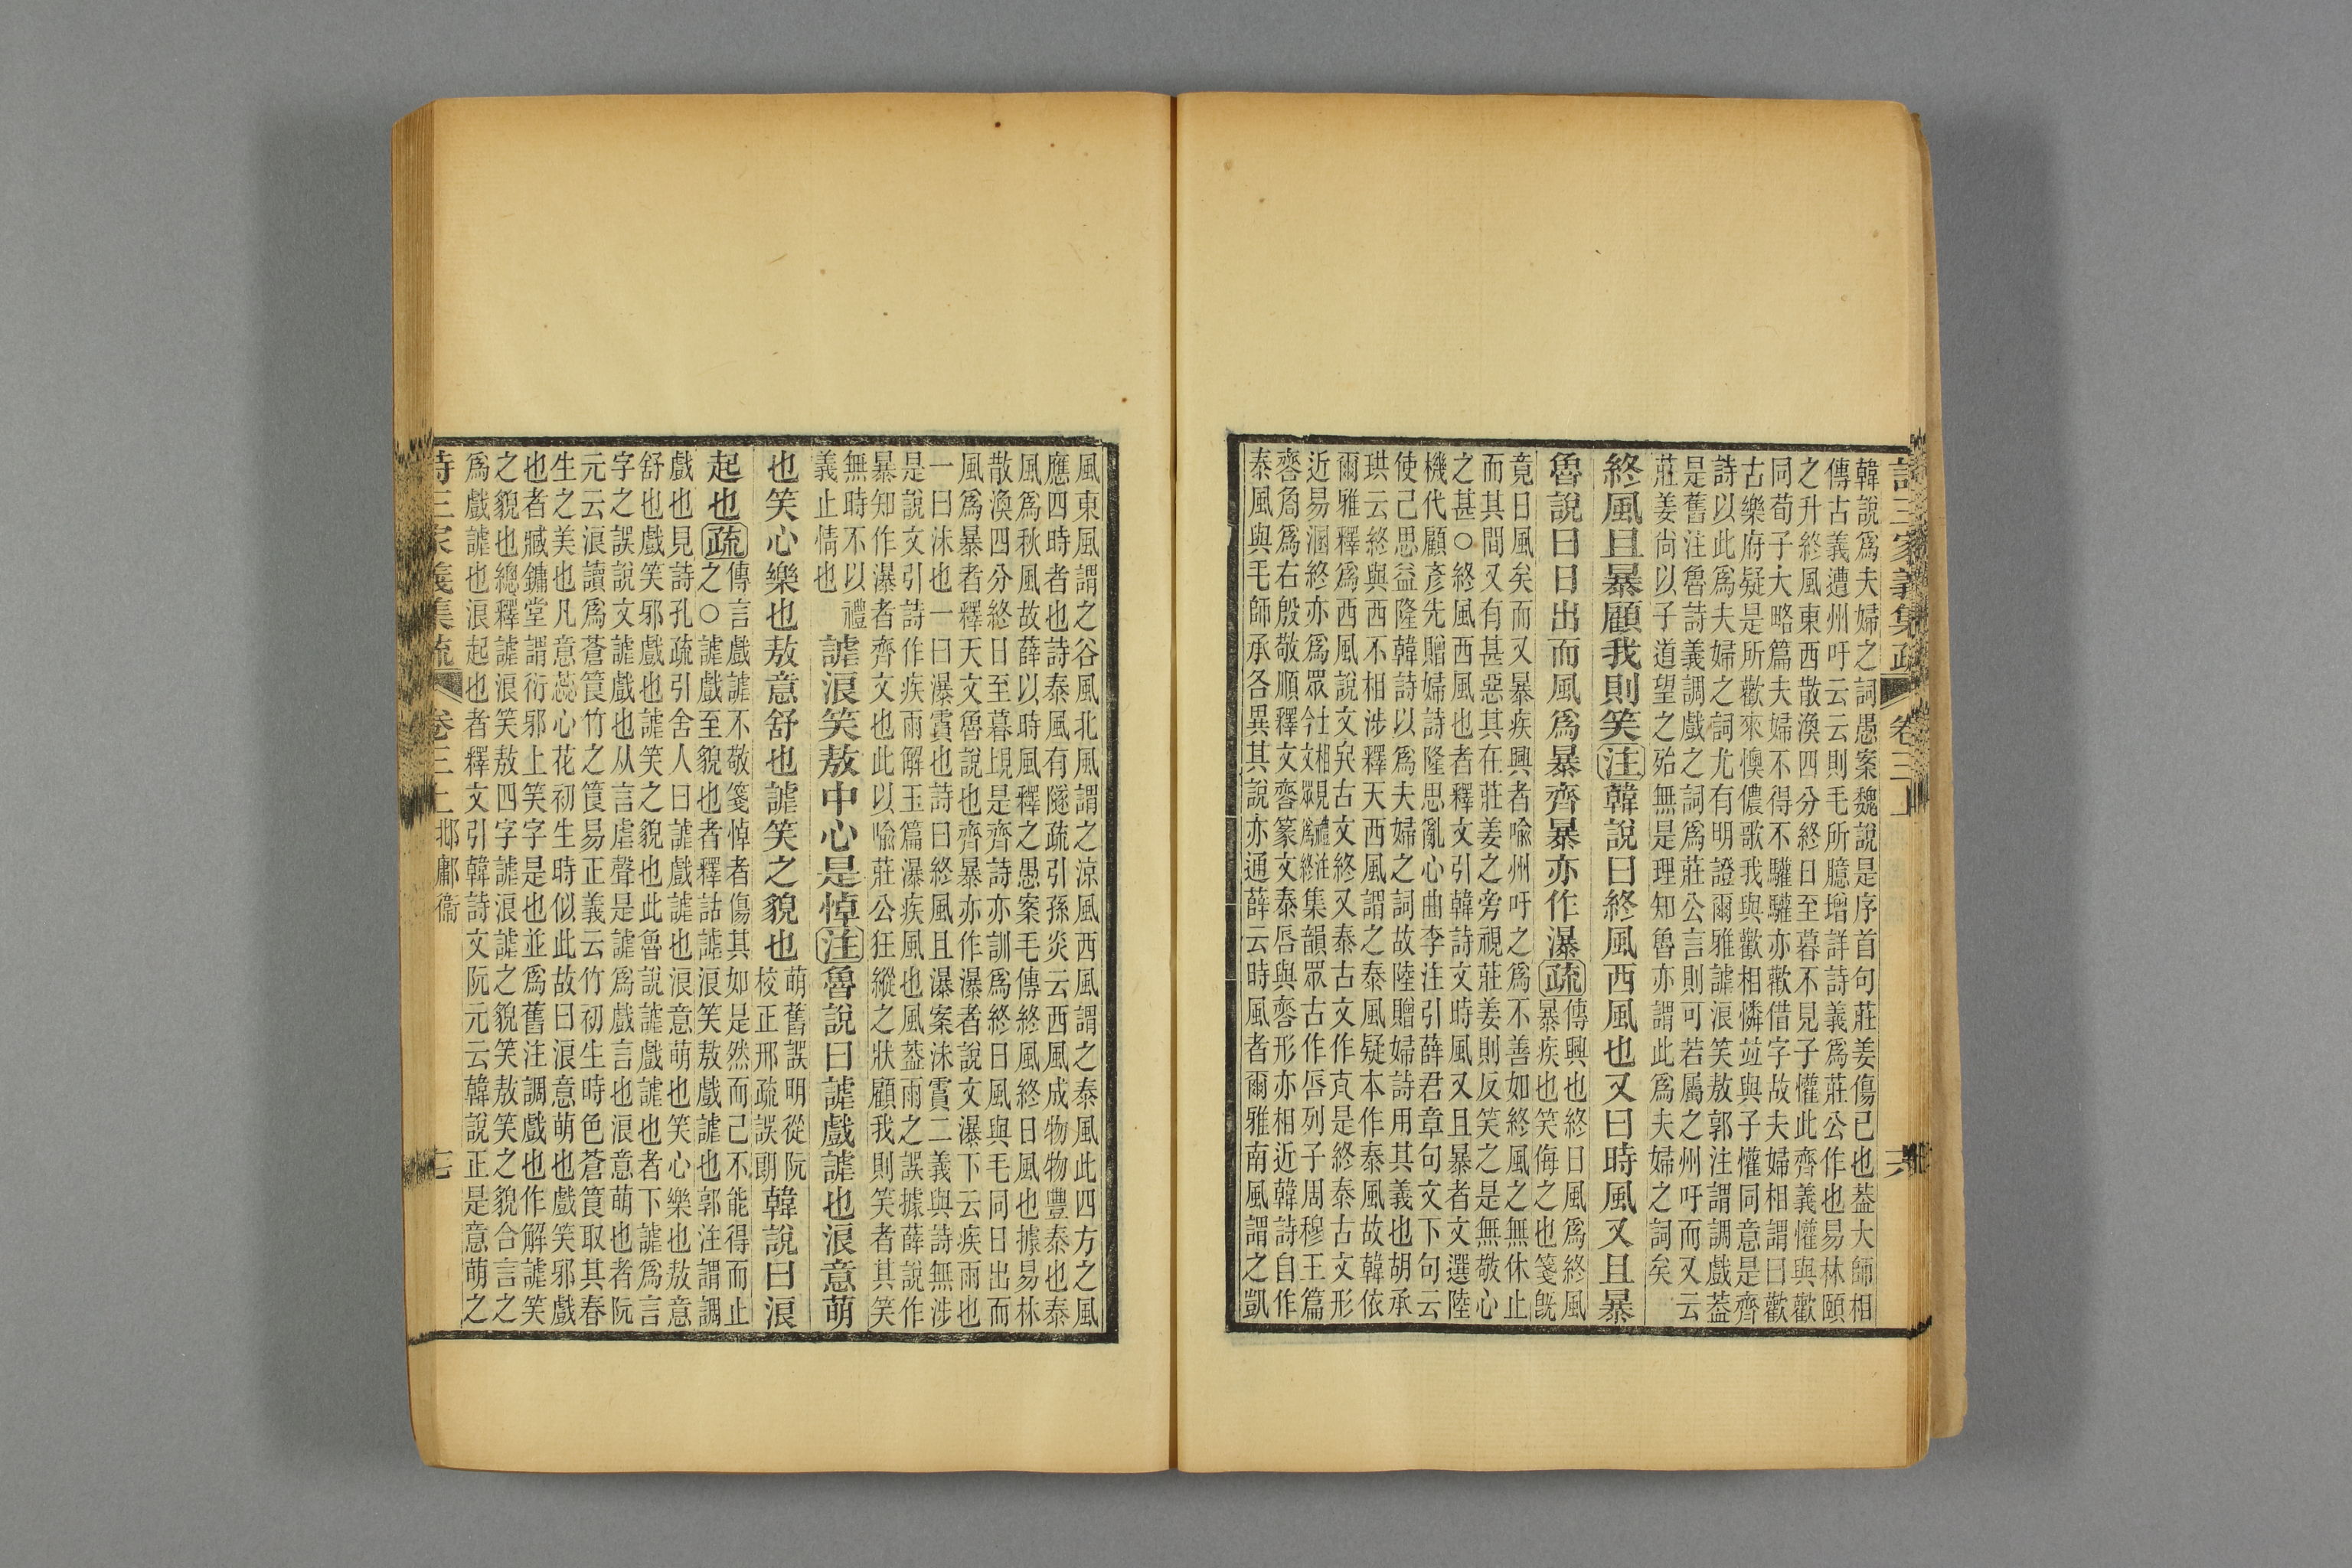 詩三家義集疏 卷三上 十六
韓說爲夫婦之詞愚案魏說是序首句莊姜傷己也葢大師相
傳古義遭州吁云云則毛所臆增詳詩義爲莊公作也易林頤
之升終風東西散渙四分終日至暮不見子懽此齊義懽與歡
同荀子大略篇夫婦不得不驩驩亦歡借字故夫婦相謂曰歡
古樂府疑是所歡來懊儂歌我與歡相憐竝與子懽同意是齊
詩以此爲夫婦之詞尤有明證爾雅謔浪笑敖郭注謂調戲葢
是舊注魯詩義調戲之詞爲莊公言則可若屬之州吁而又云
莊姜尚以子道望之殆無是理知魯亦謂此爲夫婦之詞矣
終風且暴顧我則笑注韓說曰終風西風也又曰時風又且暴
魯說曰日出而風爲暴齊暴亦作瀑疏傳興也終日風爲終風
暴疾也笑侮之也箋既
竟日風矣而又暴疾興者喻州吁之爲不善如終風之無休止
而其間又有甚惡其在莊姜之旁視莊姜則反笑之是無敬心
之甚○終風西風也者釋文引韓詩文時風又且暴者文選陸
機代顧彥先贈婦詩隆思亂心曲李注引薛君章句文下句云
使己思益隆韓詩以爲夫婦之詞故陸贈婦詩用其義也胡承
珙云終與西不相涉釋天西風謂之泰風疑本作泰風故韓依
爾雅釋爲西風說文㚇古文終又泰古文作夳是終泰古文形
近易溷終亦爲眾集韻眾古作㞢列子周穆王篇
𧯆𠧟爲右殷敬順釋文𧯆篆文泰㞢與𧯆形亦相近韓詩自作
泰風與毛師承各異其說亦通薛云時風者爾雅南風謂之凱
風東風謂之谷風北風謂之涼風西風謂之泰風此四方之風
應四時者也詩泰風有隧疏引孫炎云西風成物物豐泰也泰
風爲秋風故薛以時風釋之愚案毛傳終風終日風也據易林
散渙四分終日至暮垷是齊詩亦訓爲終日風與毛同日出而
風爲暴者釋天文魯說也齊暴亦作瀑者說文瀑下云疾雨也
一曰沫也一曰瀑霣也詩曰終風且瀑案沫霣二義與詩無涉
是說文引詩作疾雨解玉篇瀑疾風也風葢雨之誤據薛說作
暴知作瀑者齊文也此以喻莊公狂縱之狀顧我則笑者其笑
無時不以禮
義止情也
謔浪笑敖中心是悼注魯說曰謔戲謔也浪意萌
也笑心樂也敖意舒也謔笑之貌也萌舊誤明從阮
校正邢疏誤朗韓說曰浪
起也疏傳言戲謔不敬箋悼者傷其如是然而己不能得而止
之○謔戲至貌也者釋詁謔浪笑敖戲謔也郭注謂調
戲也見詩孔疏引舍人曰謔戲謔也浪意萌也笑心樂也敖意
舒也戲笑邪戲也謔笑之貌也此魯說謔戲謔也者下謔爲言
字之誤說文謔戲也从言虐聲是謔爲戲言也浪意萌也者阮
元云浪讀爲蒼筤竹之筤易正義云竹初生時色蒼筤取其春
生之美也凡意蕊心花初生時似此故曰浪意萌也戲笑邪戲
也者臧鏞堂謂衍邪上笑字是也並爲舊注調戲也作解謔笑
之貌也總釋謔浪笑敖四字謔浪謔之貌笑敖笑之貌合言之
爲戲謔也浪起也者釋文引韓詩文阮元云韓說正是意萌之
詩三家義集疏 卷三上 邶鄘衞 十七